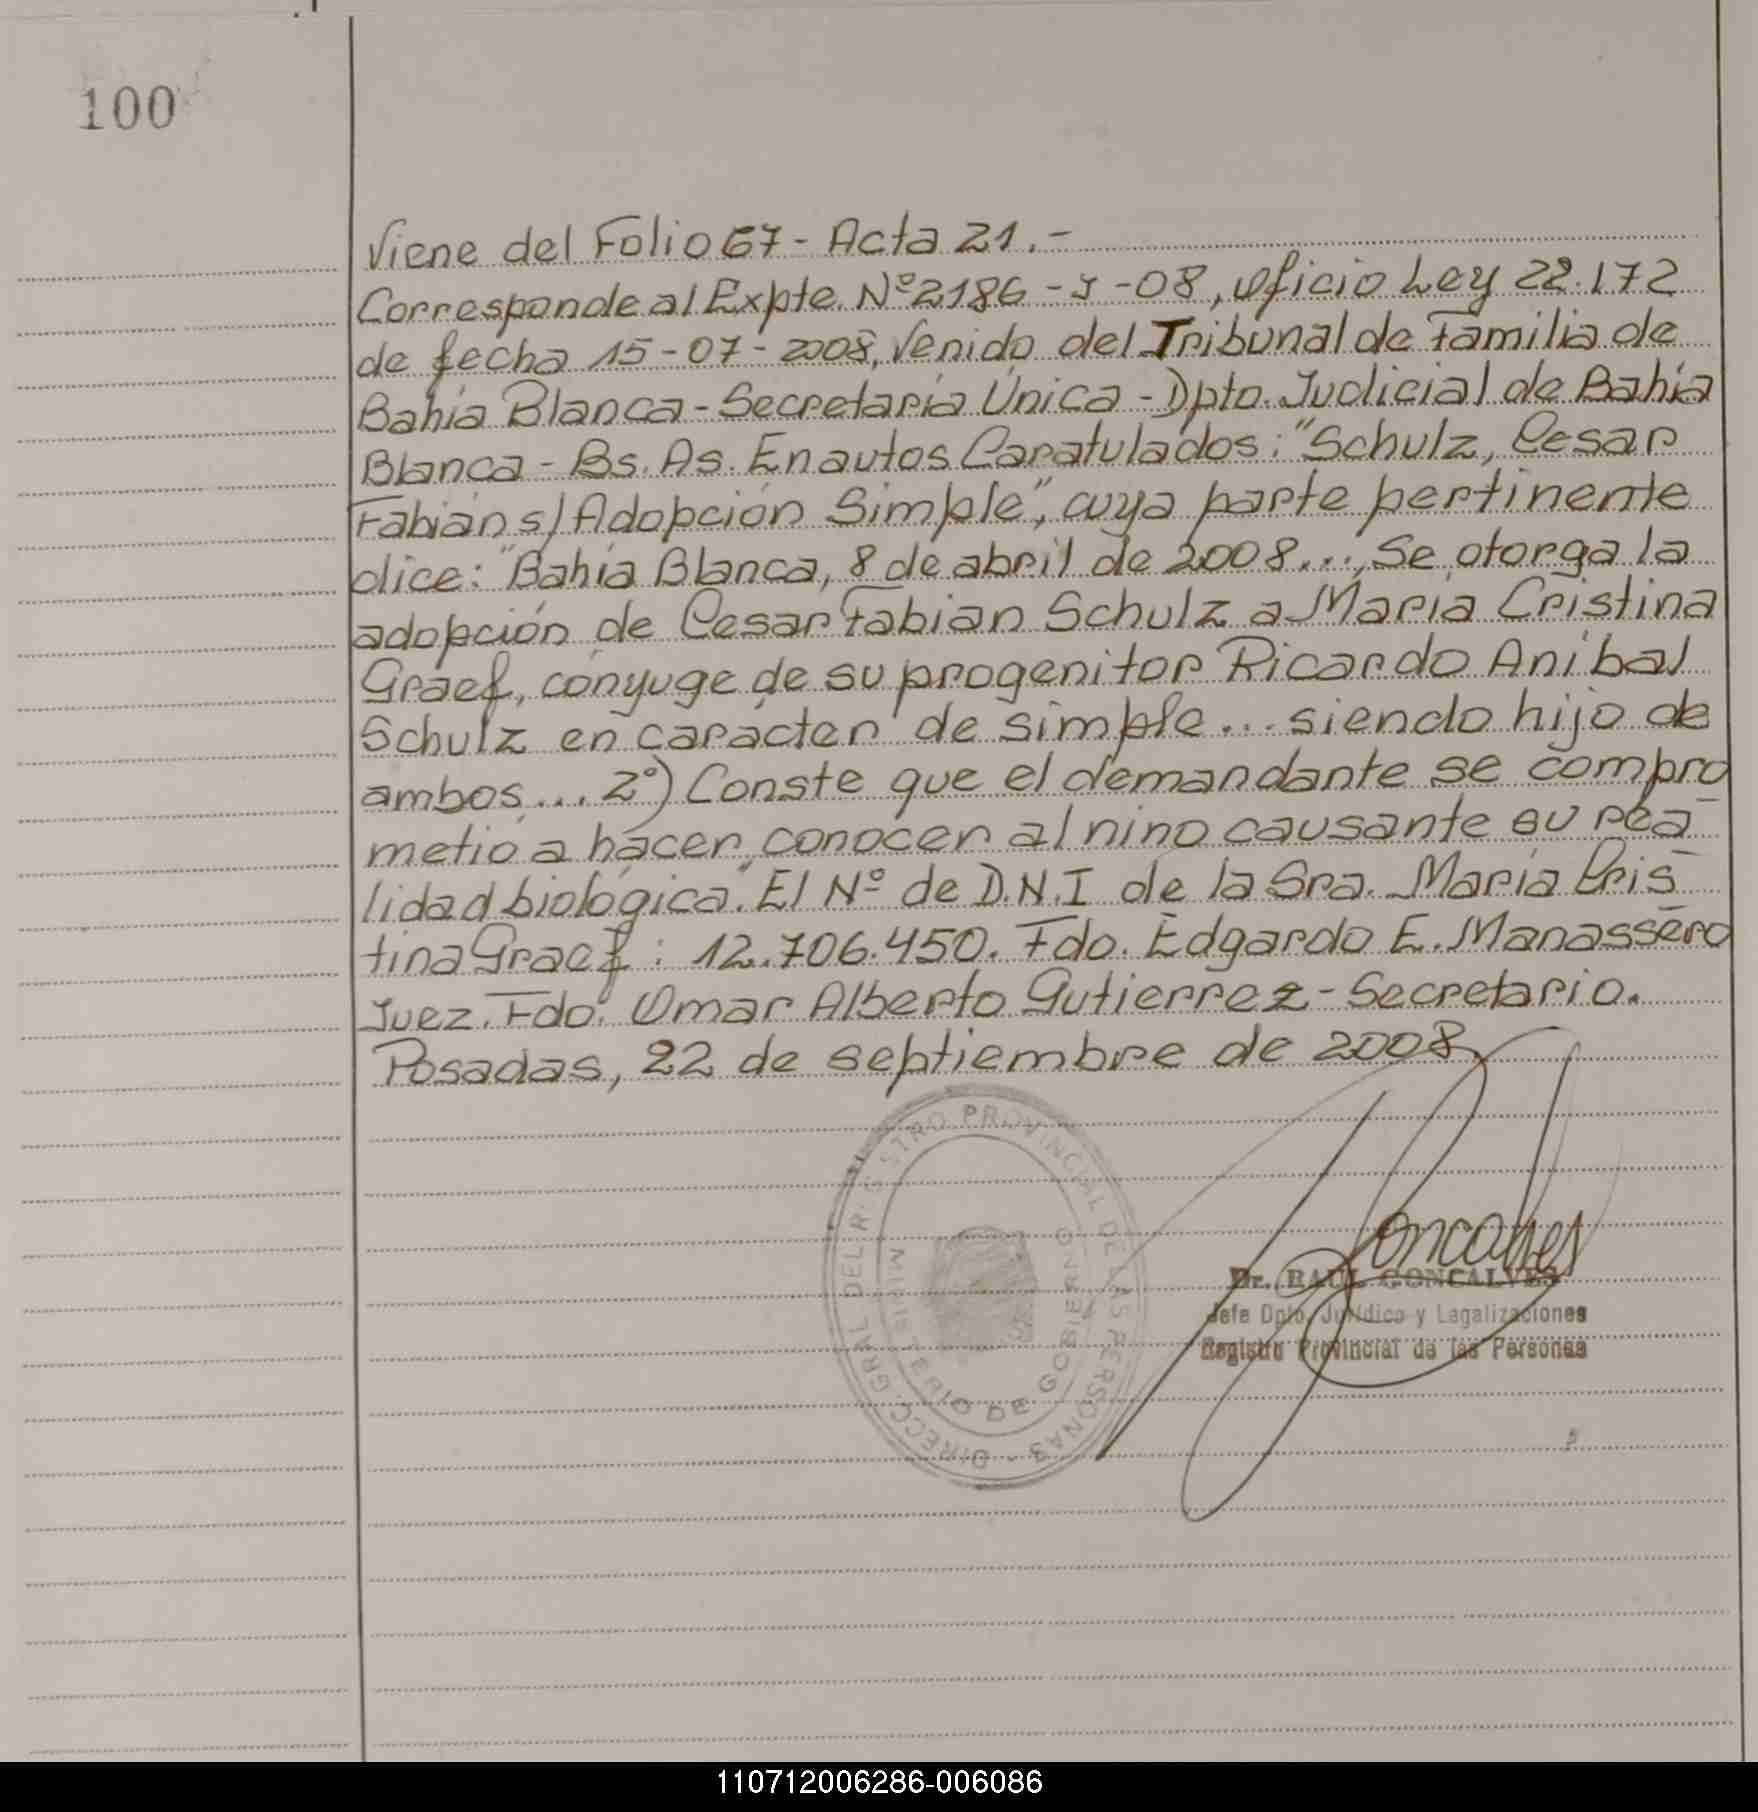 100
Viene del Folio 67 - Acta 21.-
Corresponde al Expte. Nº 2186 - J - 08, Oficio Ley 22.172
de fecha 15-07-2008, Venido del Tribunal de Familia de
Bahía Blanca - Secretaría Única - Dpto. Judicial de Bahía
Blanca - Bs. As. En autos Caratulados: "Schulz, Cesar
Fabián s/ Adopción Simple", cuya parte pertinente
dice: "Bahía Blanca, 8 de abril de 2008..., Se otorga la
adopción de Cesar Fabian Schulz a María Cristina
Graef, cónyuge de su progenitor Ricardo Anibal
Schulz en carácter de simple... siendo hijo de
ambos... 2º) Conste que el demandante se compro
metio a hacer conocer al nino causante su rea-
lidad biológica". El Nº de D.N.I de la Sra. María Cris-
tina Graef: 12.706.450. Fdo. Edgardo E. Manassero
Juez. Fdo. Omar Alberto Gutierrez - Secretario.
Posadas, 22 de septiembre de 2008.
DIRECC. GRAL DEL REGISTRO PROVINCIAL DE LAS PERSONAS -
MINISTERIO DE GOBIERNO
Goncalves
Dr. RAUL GONCALVES
Jefe Dpto. Jurídico y Legalizaciones
Registro Provincial de las Personas
110712006286-006086